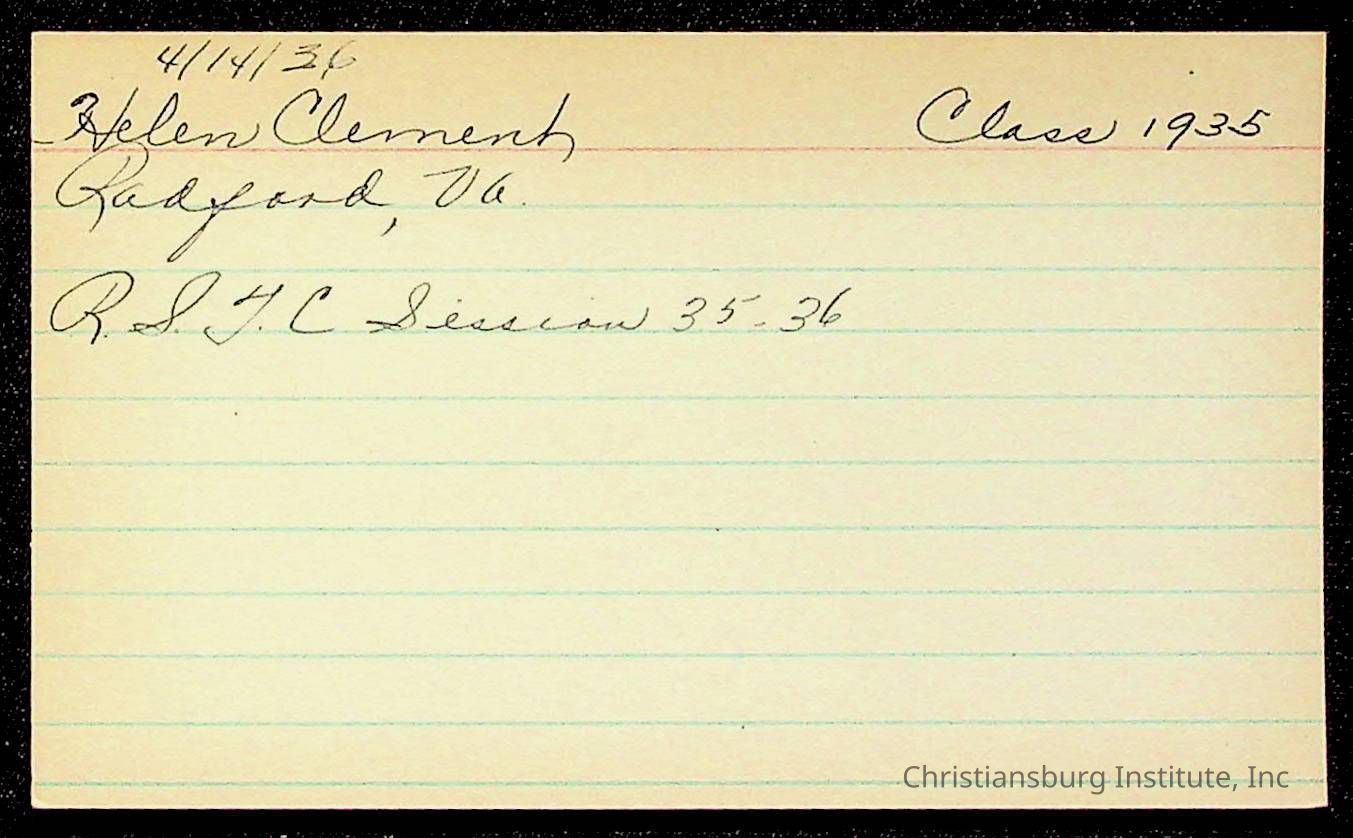 4/14/36
Helen Clement Class 1935
Radford, Va.
R. S. T. C Session 35-36
Christiansburg Institute, Inc